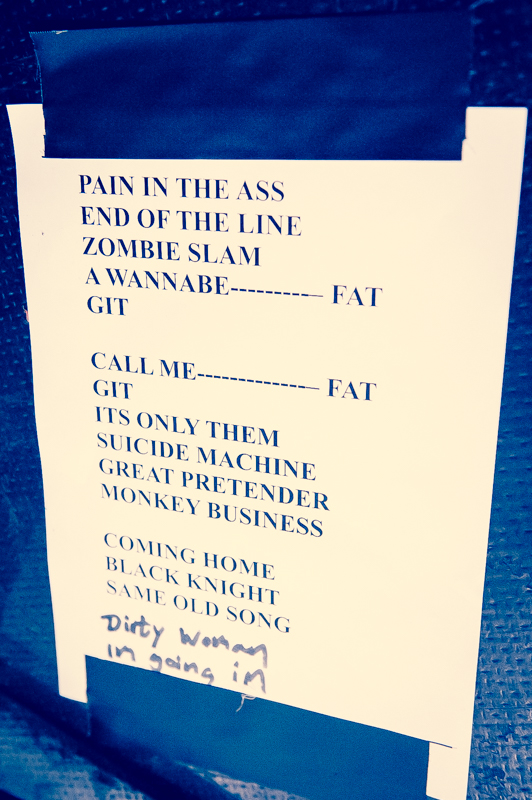 PAIN IN THE ASS
END OF THE LINE
ZOMBIE SLAM
A WANNABE--------- FAT
GIT
CALL ME------------- FAT
GIT
ITS ONLY THEM
SUICIDE MACHINE
GREAT PRETENDER
MONKEY BUSINESS
COMING HOME
BLACK KNIGHT
SAME OLD SONG
Dirty Woman
im going in